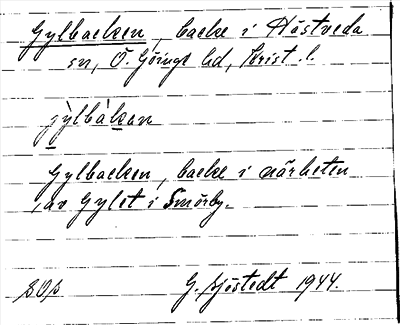 Gylbacken, backe i Hästveda
sn, Ö. Göinge hd, Krist. l.
jỳlbàkan
Gylbacken, backe i närheten
av Gylet i Smörby.
G. Sjöstedt 1944.